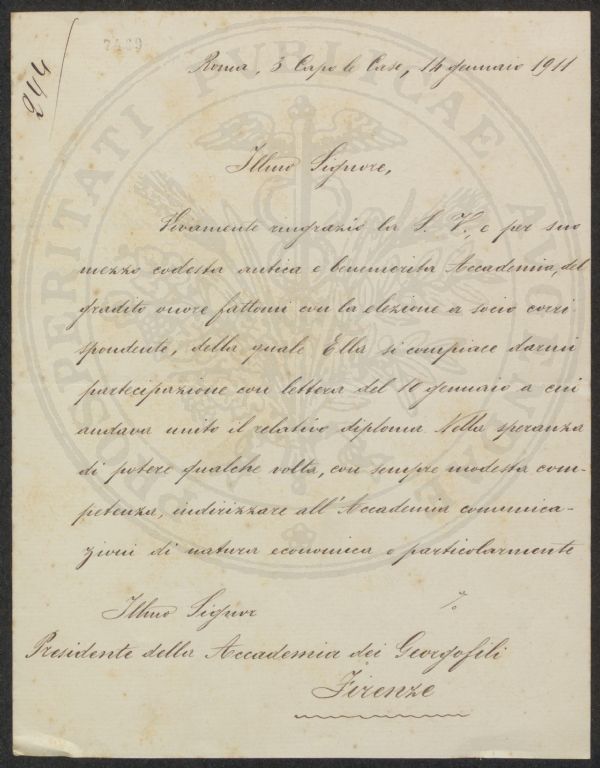 244
7409
Roma, 3 Capo le Case, 14 gennaio 1911
Illmo Signore,
Vivamente ringrazio la S. V., e per suo
mezzo codesta antica e benemerita Accademia, del
gradito onore fattomi con la elezione a socio corri
spondente, della quale Ella si compiace darmi
partecipazione con lettera del 10 gennaio a cui
andava unito il relativo diploma. Nella speranza
di potere qualche volta, con sempre modesta com-
petenza, indirizzare all'Accademia comunica-
zioni di natura economica e particolarmente
Illmo Signor
%
Presidente della Accademia dei Georgofili
Firenze
PROSPERITATI PUBLICAE AUGENDAE